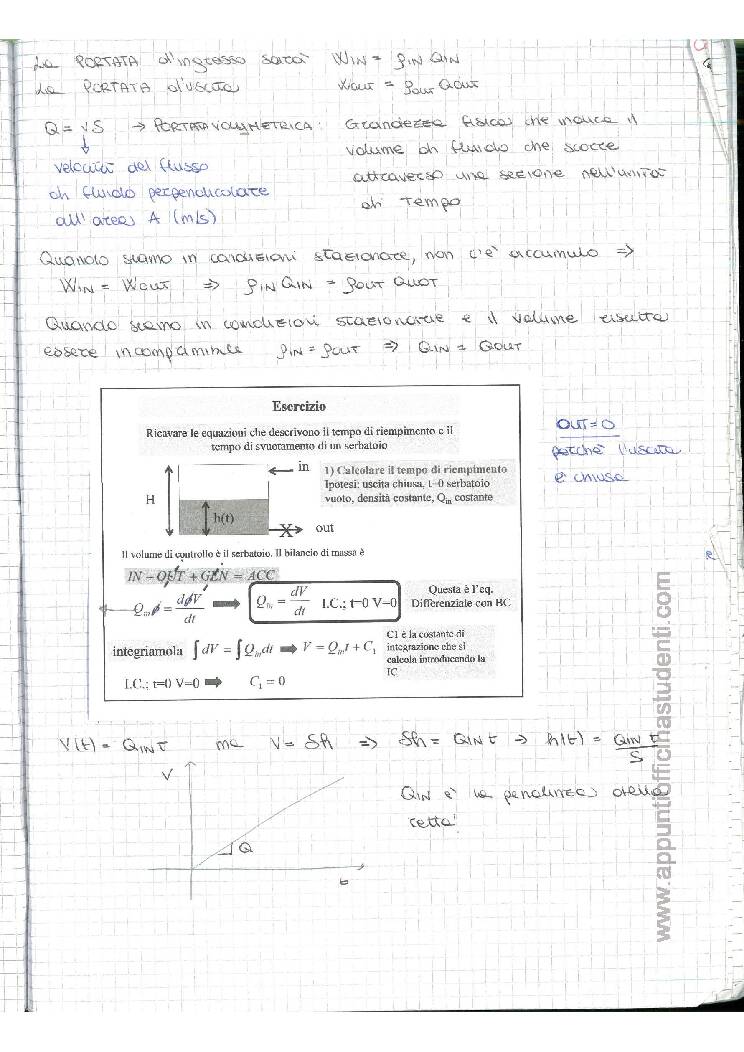 La PORTATA d'ingresso sarà WIN = ρIN QIN
La PORTATA d'uscita WOUT = ρOUT QOUT
Q = vS → PORTATA VOLUMETRICA: Grandezza fisica che indica il
volume di fluido che scorre
attraverso una sezione nell'unità
di Tempo
velocità del flusso
di fluido perpendicolare
all'area A (m/s)
Quando siamo in condizioni stazionarie, non c'è accumulo ⇒
WIN = WOUT ⇒ ρIN QIN = ρOUT QUOT
Quando siamo in condizioni stazionarie e il volume risulta
essere incomprimibile ρIN = ρOUT ⇒ QIN = QOUT
Esercizio
Ricavare le equazioni che descrivono il tempo di riempimento e il
tempo di svuotamento di un serbatoio
H
h(t)
in
X
out
1) Calcolare il tempo di riempimento
Ipotesi: uscita chiusa, t=0 serbatoio
vuoto, densità costante, Qin costante
OUT = 0
perchè l'uscita
è chiusa
Il volume di controllo è il serbatoio. Il bilancio di massa è
IN – OUT + GEN = ACC
Qinρ = dρV/dt ⇒ Qin = dV/dt I.C.; t=0 V=0
Questa è l'eq.
Differenziale con BC
integriamola ∫dV = ∫Qin dt ⇒ V = Qin t + C1
C1 è la costante di
integrazione che si
calcola introducendo la
IC
I.C.; t=0 V=0 ⇒ C1 = 0
V(t) = QIN t ma V = Sh ⇒ Sh = QIN t ⇒ h(t) = QIN t/S
V
Q
t
QIN è la pendenza della
retta
www.appuntiofficinastudenti.com